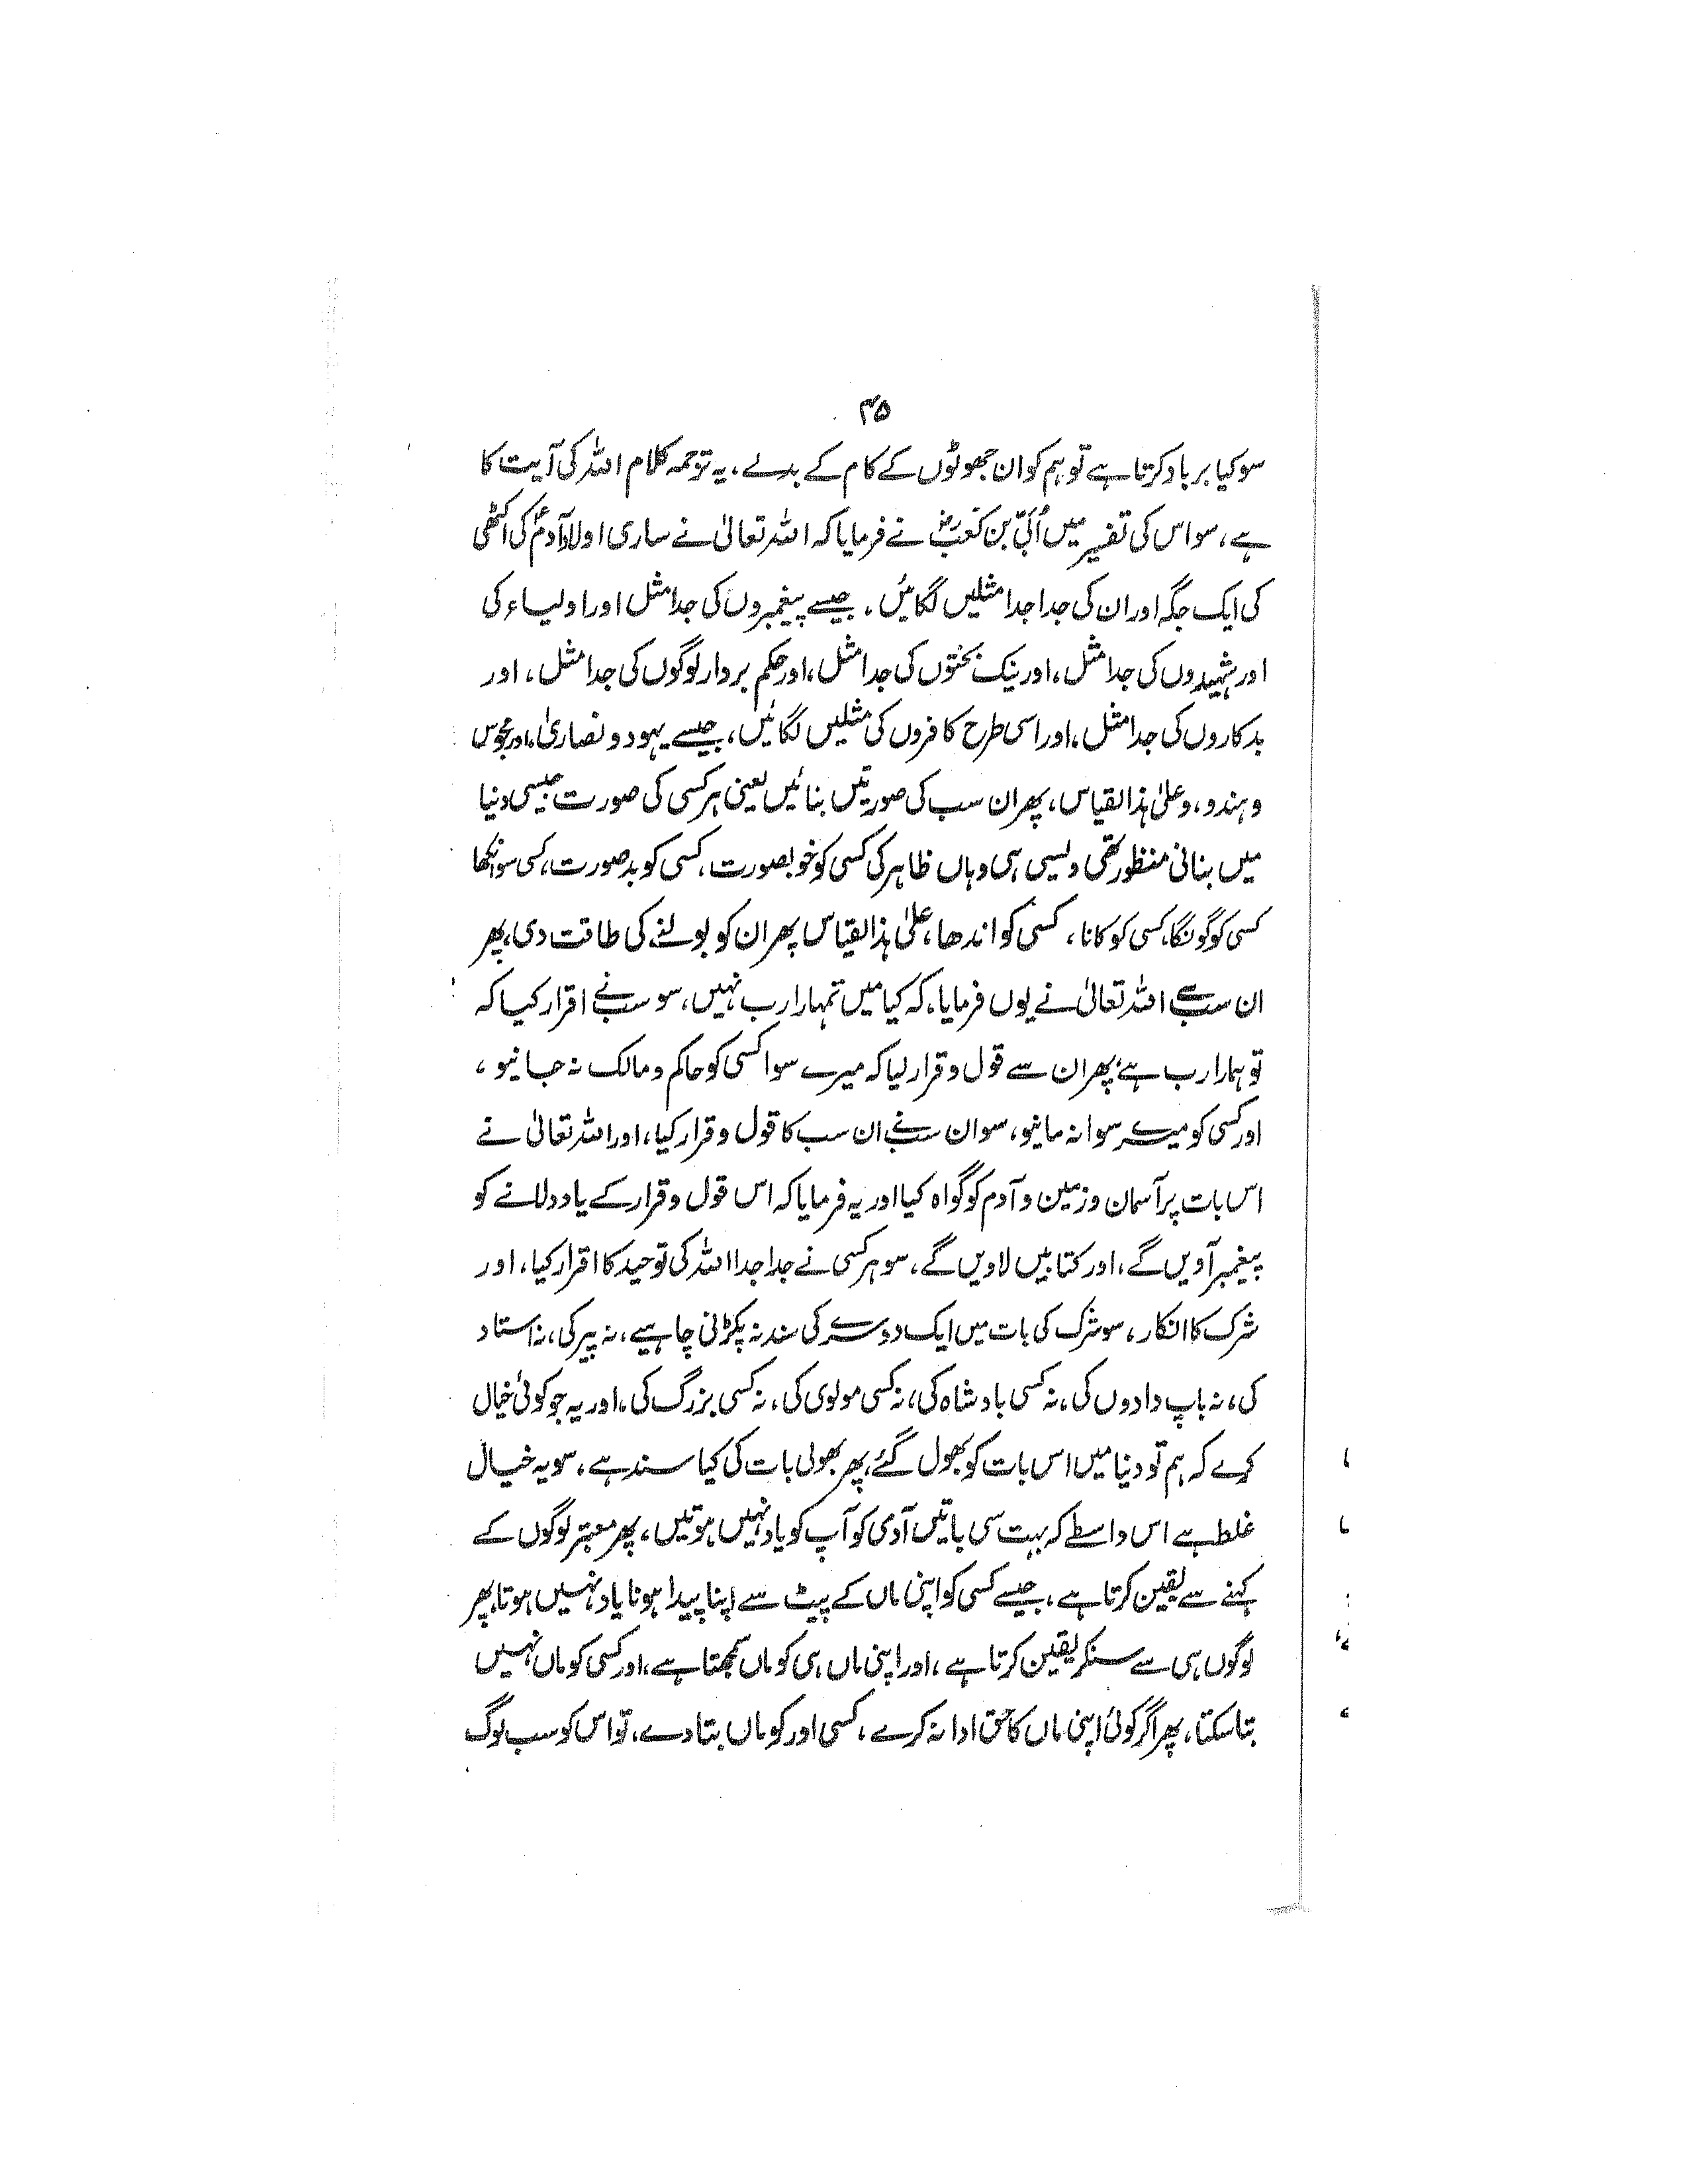 ۴۵
سو کیا برباد کرتا ہے تو ہم کو ان جھوٹوں کے کام کے بدلے، یہ ترجمہ کلام اللہ کی آیت کا
ہے، سو اس کی تفسیر میں اُبَیّ بن کعبؓ نے فرمایا کہ اللہ تعالیٰ نے ساری اولاد آدمؑ کی اکٹھی
کی ایک جگہ اور ان کی جدا جدا مثلیں لگائیں، جیسے پیغمبروں کی جدا مثل اور اولیاء کی
اور شہیدوں کی جدا مثل، اور نیک بختوں کی جدا مثل، اور حکم بردار لوگوں کی جدا مثل، اور
بدکاروں کی جدا مثل، اور اسی طرح کافروں کی مثلیں لگائیں، جیسے یہود و نصاریٰ، اور مجوس
و ہندو، و علیٰ ہذا القیاس، پھر ان سب کی صورتیں بنائیں یعنی ہر کسی کی صورت جیسی دنیا
میں بنانی منظور تھی ویسی ہی وہاں ظاہر کی کسی کو خوبصورت، کسی کو بدصورت، کسی سوانکھا
کسی کو گونگا، کسی کو کانا، کسی کو اندھا، علیٰ ہذا القیاس پھر ان کو بولنے کی طاقت دی، پھر
ان سب سے اللہ تعالیٰ نے یوں فرمایا، کہ کیا میں تمہارا رب نہیں، سو سب نے اقرار کیا کہ
تو ہمارا رب ہے، پھر ان سے قول و قرار لیا کہ میرے سوا کسی کو حاکم و مالک نہ جانیو،
اور کسی کو میرے سوا نہ مانیو، سو ان سب نے ان سب کا قول و قرار کیا، اور اللہ تعالیٰ نے
اس بات پر آسمان و زمین و آدم کو گواہ کیا اور یہ فرمایا کہ اس قول و قرار کے یاد دلانے کو
پیغمبر آویں گے، اور کتابیں لاویں گے، سو ہر کسی نے جدا جدا اللہ کی توحید کا اقرار کیا، اور
شرک کا انکار، سو شرک کی بات میں ایک دوسرے کی سند نہ پکڑنی چاہیے، نہ پیر کی، نہ استاد
کی، نہ باپ دادوں کی، نہ کسی بادشاہ کی، نہ کسی مولوی کی، نہ کسی بزرگ کی، اور یہ جو کوئی خیال
کرے کہ ہم تو دنیا میں اس بات کو بھول گئے، پھر بھولی بات کی کیا سند ہے، سو یہ خیال
غلط ہے اس واسطے کہ بہت سی باتیں آدمی کو آپ کو یاد نہیں ہوتیں، پھر معتبر لوگوں کے
کہنے سے یقین کرتا ہے، جیسے کسی کو اپنی ماں کے پیٹ سے اپنا پیدا ہونا یاد نہیں ہوتا، پھر
لوگوں ہی سے سنکر یقین کرتا ہے، اور اپنی ماں ہی کو ماں سمجھتا ہے، اور کسی کو ماں نہیں
بتا سکتا، پھر اگر کوئی اپنی ماں کا حق ادا نہ کرے، کسی اور کو ماں بتا دے، تو اس کو سب لوگ